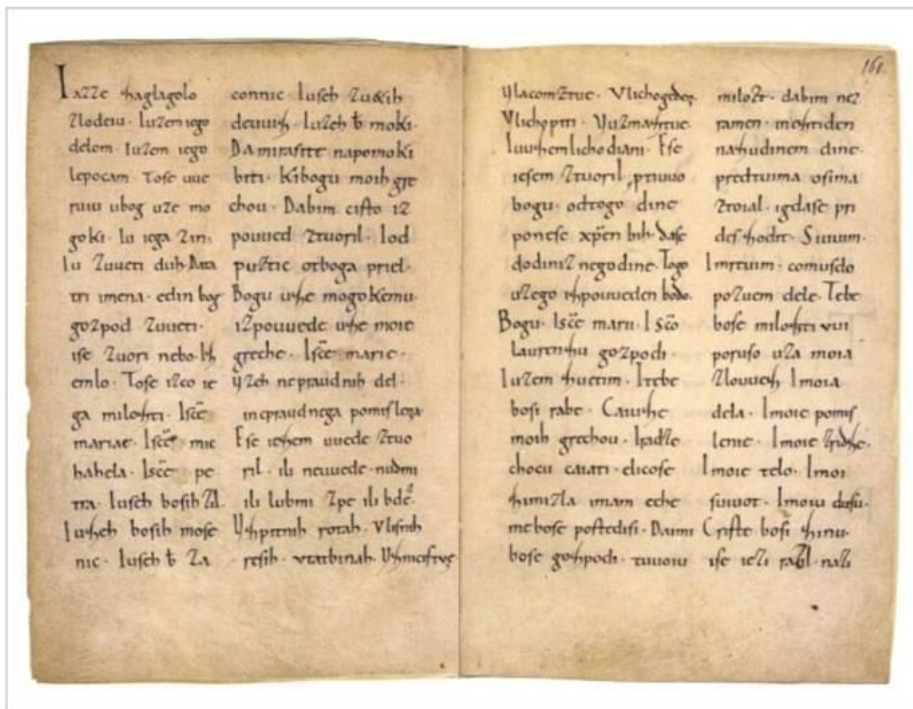 Iazze ſaglagolo
zlodeiu · Iuzem iego
delom · Iuzem iego
lepocam · Toſe uue
ruiu ubog uze mo
goki · Iu iega zin ·
Iu zuueti duh · Data
tri imena · edin bog
gozpod zuueti ·
iſe zuori nebo · Iſ
emlo · Toſe izco ie
ga miloſti · Iſcē
mariae · Iſcē mic
hahela · Iſcē pe
tra · Iuſeh boſih zil ·
Iuſeh boſih moſe
nic · Iuſeh b za
connic Iuſeh zu&ih
deuuiſ · Iuzeh b moki ·
Da miraſite napomoki
biti · Kibogu moih gre
chou · Dabim ciſto iz
pouued ztuoril · Iod
puztic otboga priel ·
Bogu uſe mogokemu ·
izpouuede uſe moie
greche · Iſcē marie ·
Uzeh nepraudnih del ·
inepraudnega pomiſlega
Eſe ieſem uuede ztuo
ril · ili neuuede · nudmi
ili lubmi zpe ili bde ·
Uſpitnih rotah · Vliſnih
reſih · vtatbinah · Uſniciſtve
161.
Vlacomztue · Vlichogeden
Vlichopiti · Vuzmaſtue ·
Iuuſem lichodiani · Eſe
ieſem ztuoril ptiuuo
bogu · odtogo dine
poneſe xp̄en bih · daſe
dodiniz negodine · Togo
uzego iſpouueden bodo ·
Bogu · Iſcē marii · I ſcō
laurenſiu goſpodi ·
Iuzem ſuetim · Itebe
boſi rabe · Caiuſe
moih grechou · Iradze
chocu caiati · elicoſe
ſimizla imam eche
me boſe poſtediſi · Daimi
boſe goſpodi · tuuoiu
milozt · dabim nez
ramen · ineſtiden
naſudinem dine ·
predtuima oſima
ztoial · igdaſe pri
deſ ſodit · Siuuim ·
Imrtuim · comuſdo
pozuem dele · Tebe
boſe miloſtivi
poruſo uza moia
zlouueſ Imoia
dela · Imoie pomiſ
lenie · Imoie zridze ·
Imoie telo · Imoi
ſiuuot · Imoiu duſu ·
Criſte boſi ſinu ·
iſe iezi razil · nazi